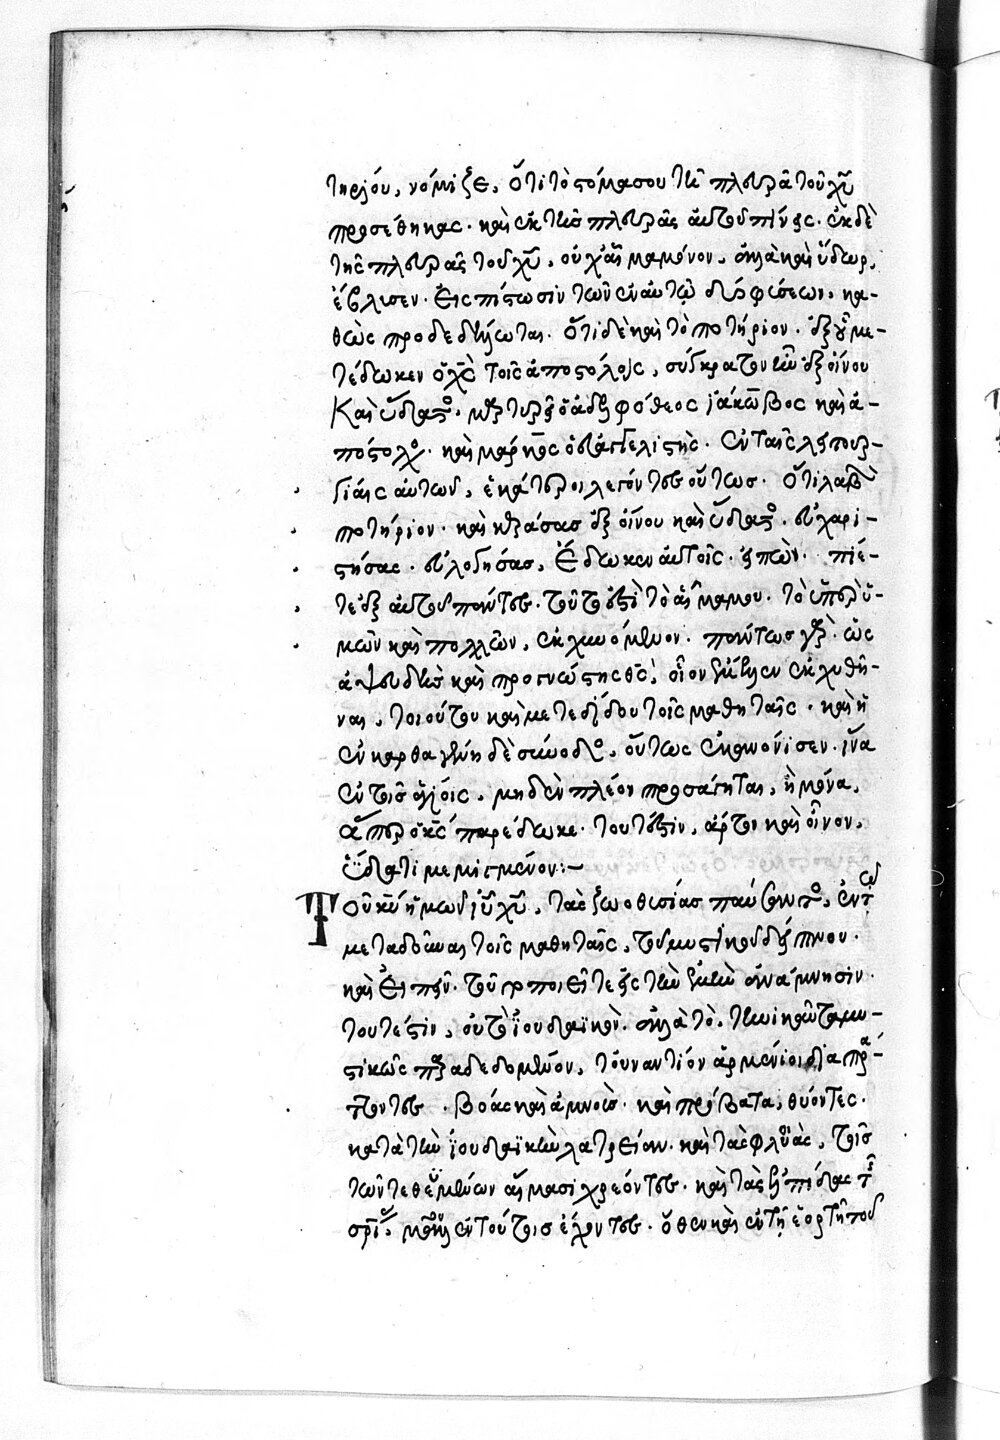 τηρίου, νόμιζε, ὅτι τὸ στόμα σου τῆ πλευρᾶ τοῦ χῦ
προσέθηκας. καὶ ἐκ τῆς πλευρᾶς αὐτοῦ πίνεις. ἐκ δὲ
τῆς πλευρᾶς τοῦ χῦ, οὐχ αἷμα μόνον, ἀλλὰ καὶ ὕδωρ,
ἔβλισεν. εἰς πίστωσιν τῶν ἐν αὐτῷ δύο φύσεων, κα-
θὼς προδεδήλωται. ὅτι δὲ καὶ τὸ ποτήριον. ἐξ οὗ με-
τέδωκεν ὁ χς τοῖς ἀποστόλοις, σύγκρατον ἦν ἐξ οἴνου
Καὶ ὕδατος. μαρτυρεῖ ὁ ἀδελφόθεος ἰάκωβος καὶ ἀ-
πόστολος. καὶ μάρκος ὁ εὐαγγελιστής. ἐν ταῖς λειτουρ-
γίαις αὐτῶν, ἑκάτεροι λέγοντες οὕτως. ὅτι λαβὼν
ποτήριον. καὶ κεράσας ἐξ οἴνου καὶ ὕδατος. εὐχαρι-
στήσας. εὐλογήσας, ἔδωκεν αὐτοῖς. εἰπὼν. πίε-
τε ἐξ αὐτοῦ πάντες. τοῦτό ἐστι τὸ αἷμα μου. τὸ ὑπὲρ ὑ-
μῶν καὶ πολλῶν, ἐκχυνόμενον. πάντως γὰρ. ὡς
ἀψευδὴς καὶ προγνώστης θς, οἷον ἔμελλεν ἐκχυθῆ-
ναι, τοιοῦτον καὶ μετεδίδου τοῖς μαθηταῖς. καὶ ἡ
ἐν καρθαγένη δὲ σύνοδος, οὕτως ἐκανόνισεν. ἵνα
ἐν τοῖς ἁγίοις, μηδὲν πλέον προσάγηται, ἢ μόνα,
ἅπερ ὁ κς παρέδωκε. τουτέστιν, ἄρτον καὶ οἶνον,
ὕδατι μεμιγμένον:-
Τοῦ κυ ἡμῶν ιυ χυ, τὰς ζωοθυσίας παύσαντος, ἐν τῷ
μεταδοῦναι τοῖς μαθηταῖς, τοῦ μυστικοῦ δείπνου.
καὶ εἰπεῖν. τοῦτο ποιεῖτε εἰς τὴν ἐμὴν ἀνάμνησιν.
τουτέστιν, οὐ τὸ ἰουδαϊκὸν. ἀλλὰ τὸ.
στικῶς παραδεδομένον, τοὐναντίον ἀρμένιοι διαπρά-
ττοντες. βόας καὶ ἀμνοὺς. καὶ πρόβατα, θύοντες.
κατὰ τὴν ἰουδαϊκὴν λατρείαν. καὶ τὰς φλιὰς, τοῖς
τῶν τεθυμένων αἵμασι χρέοντες. καὶ τὰς ἐλπίδας τῆς
σρίας, μόνης ἐν τούτοις ἔχοντες. ὅθεν καὶ ἐν τῇ ἑορτῇ τοῦ